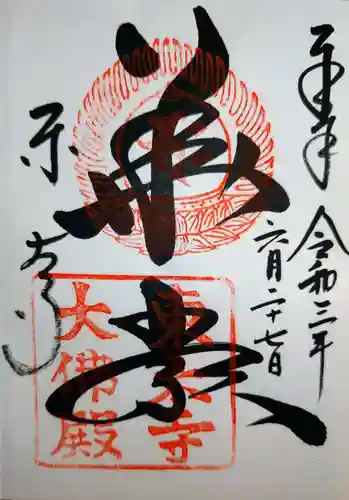 奉拝
令和三年
六月二十七日
華厳
東大寺
大佛殿
東大寺